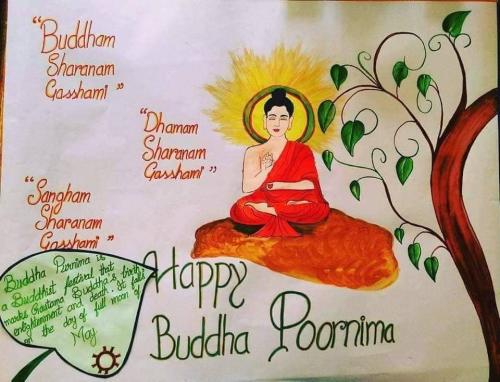 "Buddham
Sharanam
Gasshami"
"Dhamam
Sharanam
Gasshami"
"Sangham
Sharanam
Gasshami"
Buddha Purnima is
a Buddhist festival that
marks Gautama Buddha's birth
enlightenment and death. It falls
on the day of full moon in
May
Happy
Buddha Poornima